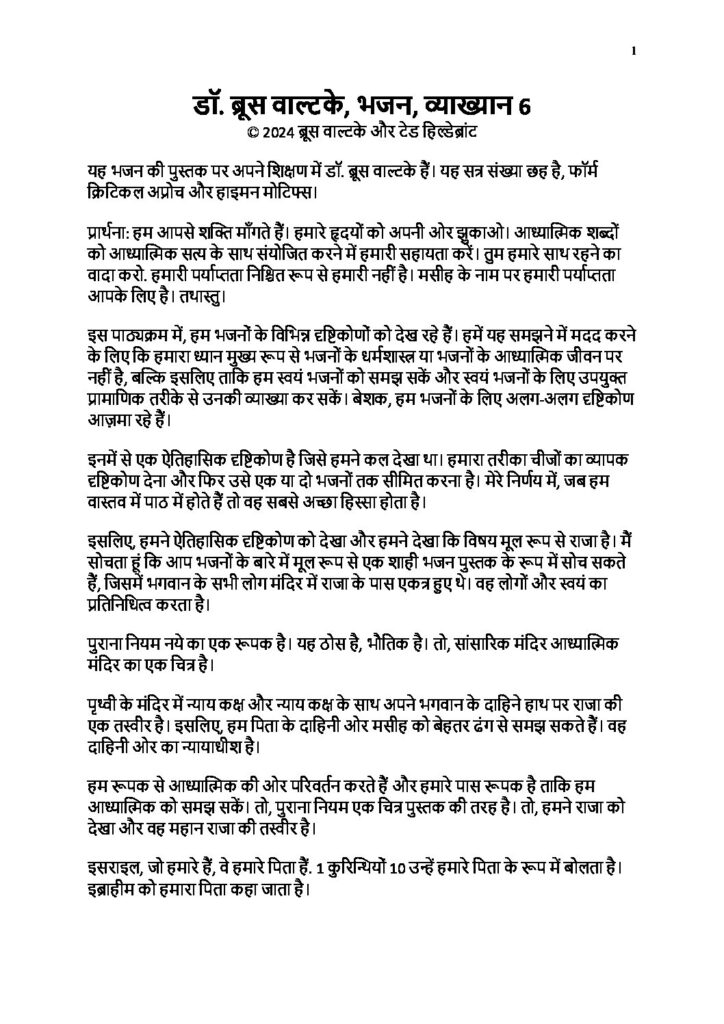 1
डॉ. ब्रूस वाल्टके, भजन, व्याख्यान 6
© 2024 ब्रूस वाल्टके और टेड हिल्डेब्रांट
यह भजन की पुस्तक पर अपने शिक्षण में डॉ. ब्रूस वाल्टके हैं। यह सत्र संख्या छह है, फॉर्म
क्रिटिकल अप्रोच और हाइमन मोटिफ्स।
प्रार्थना: हम आपसे शक्ति माँगते हैं। हमारे हृदयों को अपनी ओर झुकाओ। आध्यात्मिक शब्दों
को आध्यात्मिक सत्य के साथ संयोजित करने में हमारी सहायता करें। तुम हमारे साथ रहने का
वादा करो. हमारी पर्याप्तता निश्चित रूप से हमारी नहीं है। मसीह के नाम पर हमारी पर्याप्तता
आपके लिए है। तथास्तु।
इस पाठ्यक्रम में, हम भजनों के विभिन्न दृष्टिकोणों को देख रहे हैं। हमें यह समझने में मदद करने
के लिए कि हमारा ध्यान मुख्य रूप से भजनों के धर्मशास्त्र या भजनों के आध्यात्मिक जीवन पर
नहीं है, बल्कि इसलिए ताकि हम स्वयं भजनों को समझ सकें और स्वयं भजनों के लिए उपयुक्त
प्रामाणिक तरीके से उनकी व्याख्या कर सकें। बेशक, हम भजनों के लिए अलग-अलग दृष्टिकोण
आज़मा रहे हैं।
इनमें से एक ऐतिहासिक दृष्टिकोण है जिसे हमने कल देखा था। हमारा तरीका चीजों का व्यापक
दृष्टिकोण देना और फिर उसे एक या दो भजनों तक सीमित करना है। मेरे निर्णय में, जब हम
वास्तव में पाठ में होते हैं तो वह सबसे अच्छा हिस्सा होता है।
इसलिए, हमने ऐतिहासिक दृष्टिकोण को देखा और हमने देखा कि विषय मूल रूप से राजा है। मैं
सोचता हूं कि आप भजनों के बारे में मूल रूप से एक शाही भजन पुस्तक के रूप में सोच सकते
हैं, जिसमें भगवान के सभी लोग मंदिर में राजा के पास एकत्र हुए थे। वह लोगों और स्वयं का
प्रतिनिधित्व करता है।
पुराना नियम नये का एक रूपक है। यह ठोस है, भौतिक है। तो, सांसारिक मंदिर आध्यात्मिक
मंदिर का एक चित्र है।
पृथ्वी के मंदिर में न्याय कक्ष और न्याय कक्ष के साथ अपने भगवान के दाहिने हाथ पर राजा की
एक तस्वीर है। इसलिए, हम पिता के दाहिनी ओर मसीह को बेहतर ढंग से समझ सकते हैं। वह
दाहिनी ओर का न्यायाधीश है।
हम रूपक से आध्यात्मिक की ओर परिवर्तन करते हैं और हमारे पास रूपक है ताकि हम
आध्यात्मिक को समझ सकें। तो, पुराना नियम एक चित्र पुस्तक की तरह है। तो, हमने राजा को
देखा और वह महान राजा की तस्वीर है।
इसराइल, जो हमारे हैं, वे हमारे पिता हैं. 1 कुरिन्थियों 10 उन्हें हमारे पिता के रूप में बोलता है।
इब्राहीम को हमारा पिता कहा जाता है।